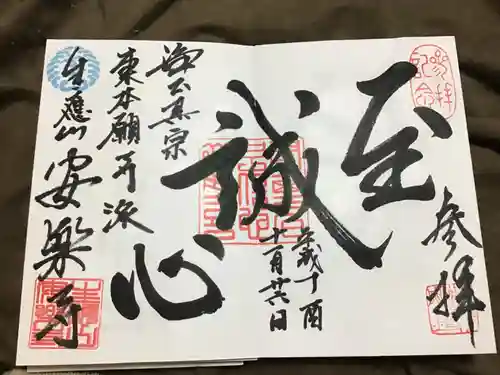 参拝記念
参拝
至
誠心
平成丁酉
十一月廿六日
浄土真宗
東本願寺派
生應山
安楽寺